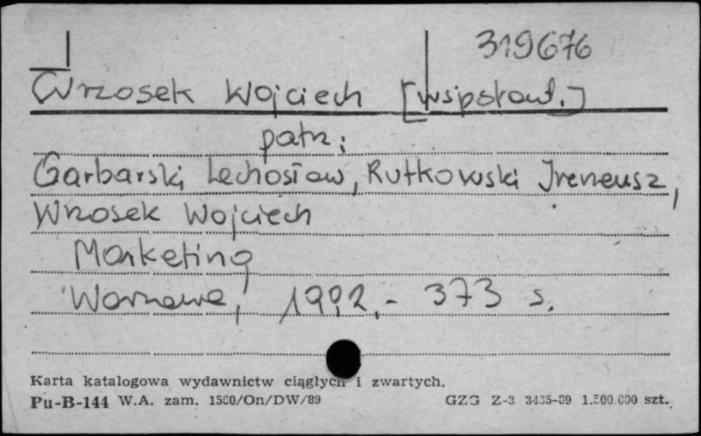 319676
Wrzosek Wojciech [współaut.]
patrz:
Garbarski Lechosław, Rutkowski Ireneusz,
Wrzosek Wojciech
Marketing
Warszawa, 1992.- 373 s.
Karta katalogowa wydawnictw ciągłych i zwartych.
Pu-B-144 W.A. zam. 1560/On/DW/89 GZG Z-3 3435-89 1.500.000 szt.